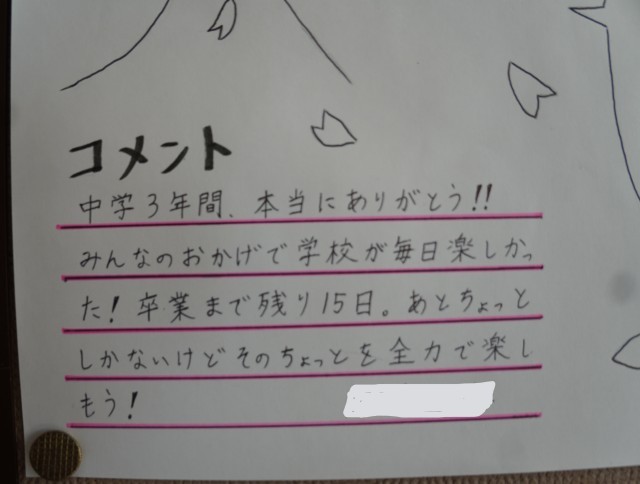 コメント
中学3年間、本当にありがとう!!
みんなのおかげで学校が毎日楽しかっ
た!卒業まで残り15日。あとちょっと
しかないけどそのちょっとを全力で楽し
もう!